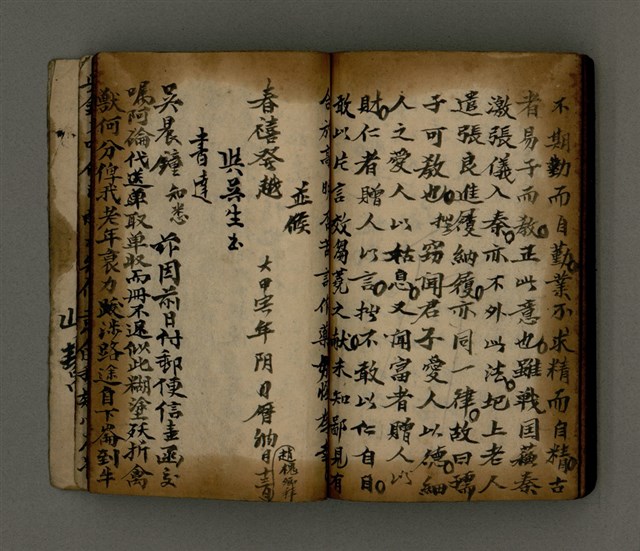 不期勤而自勤業不求精而自精古
者易子而教正此意也雖戰国蘇秦
激張儀入秦亦不外此法圯上老人
遣張良進履納履亦同一律故曰孺
子可教也 窃聞君子愛人以德細
人之愛人以姑息又聞富者贈人以
財仁者贈人以言拙不敢以仁自目
敢以片言效芻蕘之献未知鄙見有
並候
春禧癸越 大甲寅年阴日曆納月十三日
趙
吳生
書達
吳晨鐘知悉 茲因前日付郵便信壹函交
嘱阿崙代送單取單収而冊不返似此糊塗殀折禽
獣何分俾我老年衰力跋涉路途自下崙到牛
山